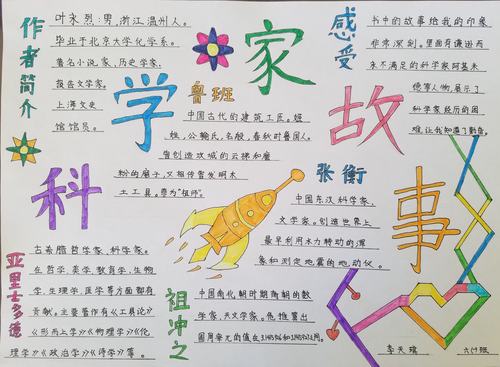 作者简介
叶永烈:男,浙江温州人。
毕业于北京大学化学系。
著名小说家、历史学家、
报告文学家。
上海文史
馆馆员。
科学家故事
鲁班
中国古代的建筑工匠。姬
姓,公输氏,名般,春秋时鲁国人。
曾创造攻城的云梯和磨
粉的磨子,又相传曾发明木
土工具。尊为"祖师"。
感受
书中的故事给我的印象
非常深刻。里面有谦逊而
永不满足的科学家阿基米
德等人物,展示了
科学家经历的困
难,让我知道了勤奋。
张衡
中国东汉科学家、
文学家。创造世界上
最早利用水力转动的浑
象和测定地震的地动仪。
亚里士多德
古希腊哲学家,科学家。
在哲学,美学,教育学,生物
学,生理学,医学等方面都有
贡献。主要著作有《工具论》
《形而上学》《物理学》《伦
理学》《政治学》《诗学》等。
祖冲之
中国南北朝时期南朝的数
学家,天文学家。他推算出
圆周率元的值在3.1415926和3.1415927之间。
李天瑞